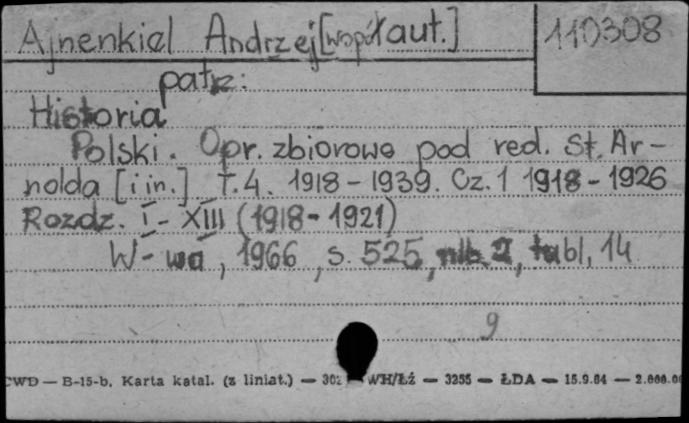 Ajnenkiel Andrzej [współaut.]
110308
patrz:
Historia
Polski. Opr. zbiorowe pod red. St. Ar-
nolda [i in.] T.4. 1918-1939. Cz.1 1918-1926
Rozdz. I-XIII (1918-1921)
W-wa, 1966, s. 525, nlb. 2, tabl. 14
9
CWD — B-15-b. Karta katal. (z liniat.) — 302 WH/Łż — 3255 — ŁDA — 15.9.64 — 2.000.00